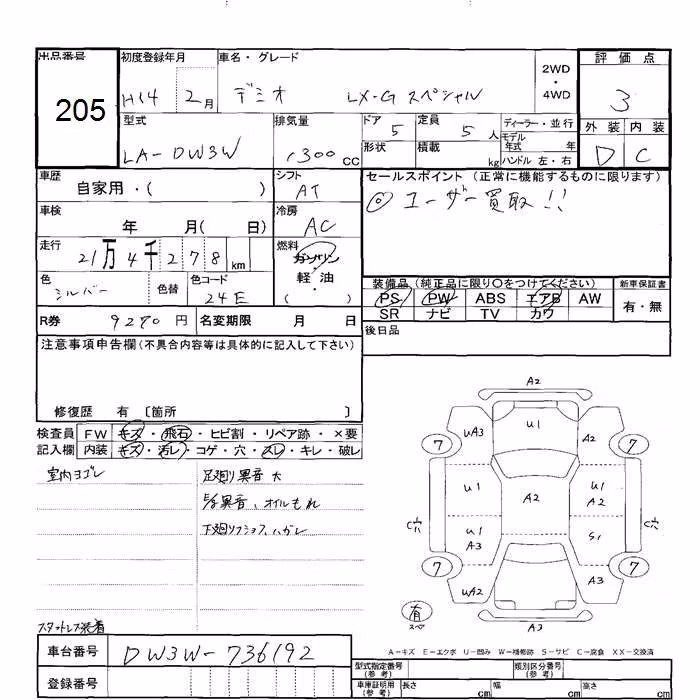 出品番号 初度登録年月 車名・グレード 2WD・4WD 評価点
205 H14 2月 デミオ LX-G スペシャル 3
型式 排気量 ドア 定員 ディーラー・並行 外装 内装
LA-DW3W 1300cc 5 5人 モデル年式 年 D C
形状 積載 kg ハンドル 左・右
車歴 シフト セールスポイント (正常に機能するものに限ります)
自家用・( ) AT ◎ユーザー買取!!
車検 冷房
年 月( 日) AC
走行 燃料
21万4千278km ガソリン
軽・油
( )
色 色替 色コード
シルバー 24E
装備品(純正品に限り○をつけてください) 新車保証書
PS PW ABS エアB AW 有・無
SR ナビ TV カワ
R券 9270円 名変期限 月 日 後日品
注意事項申告欄(不具合内容等は具体的に記入して下さい)
修復歴 有 〔箇所 〕
検査員 FW キズ・飛石・ヒビ割・リペア跡・×要
記入欄 内装 キズ・汚レ・コゲ・穴・スレ・キレ・破レ
室内ヨゴレ 足廻り異音大
異音、オイルもれ
下廻り ハガレ
スタットレス装着
A2
UA3 U1 A2
7 7
U1 U1
A2 A2
C穴 C穴
U1 S1
A3
7 7
UA2 A3
有
スペア
A3
A-キズ E-エクボ U-凹み W-補修跡 S-サビ C-腐食 XX-交換済
車台番号 DW3W-736192
登録番号
型式指定番号(参考) 類別区分番号(参考)
車庫証明用(参考) 長さ cm 幅 cm 高さ cm